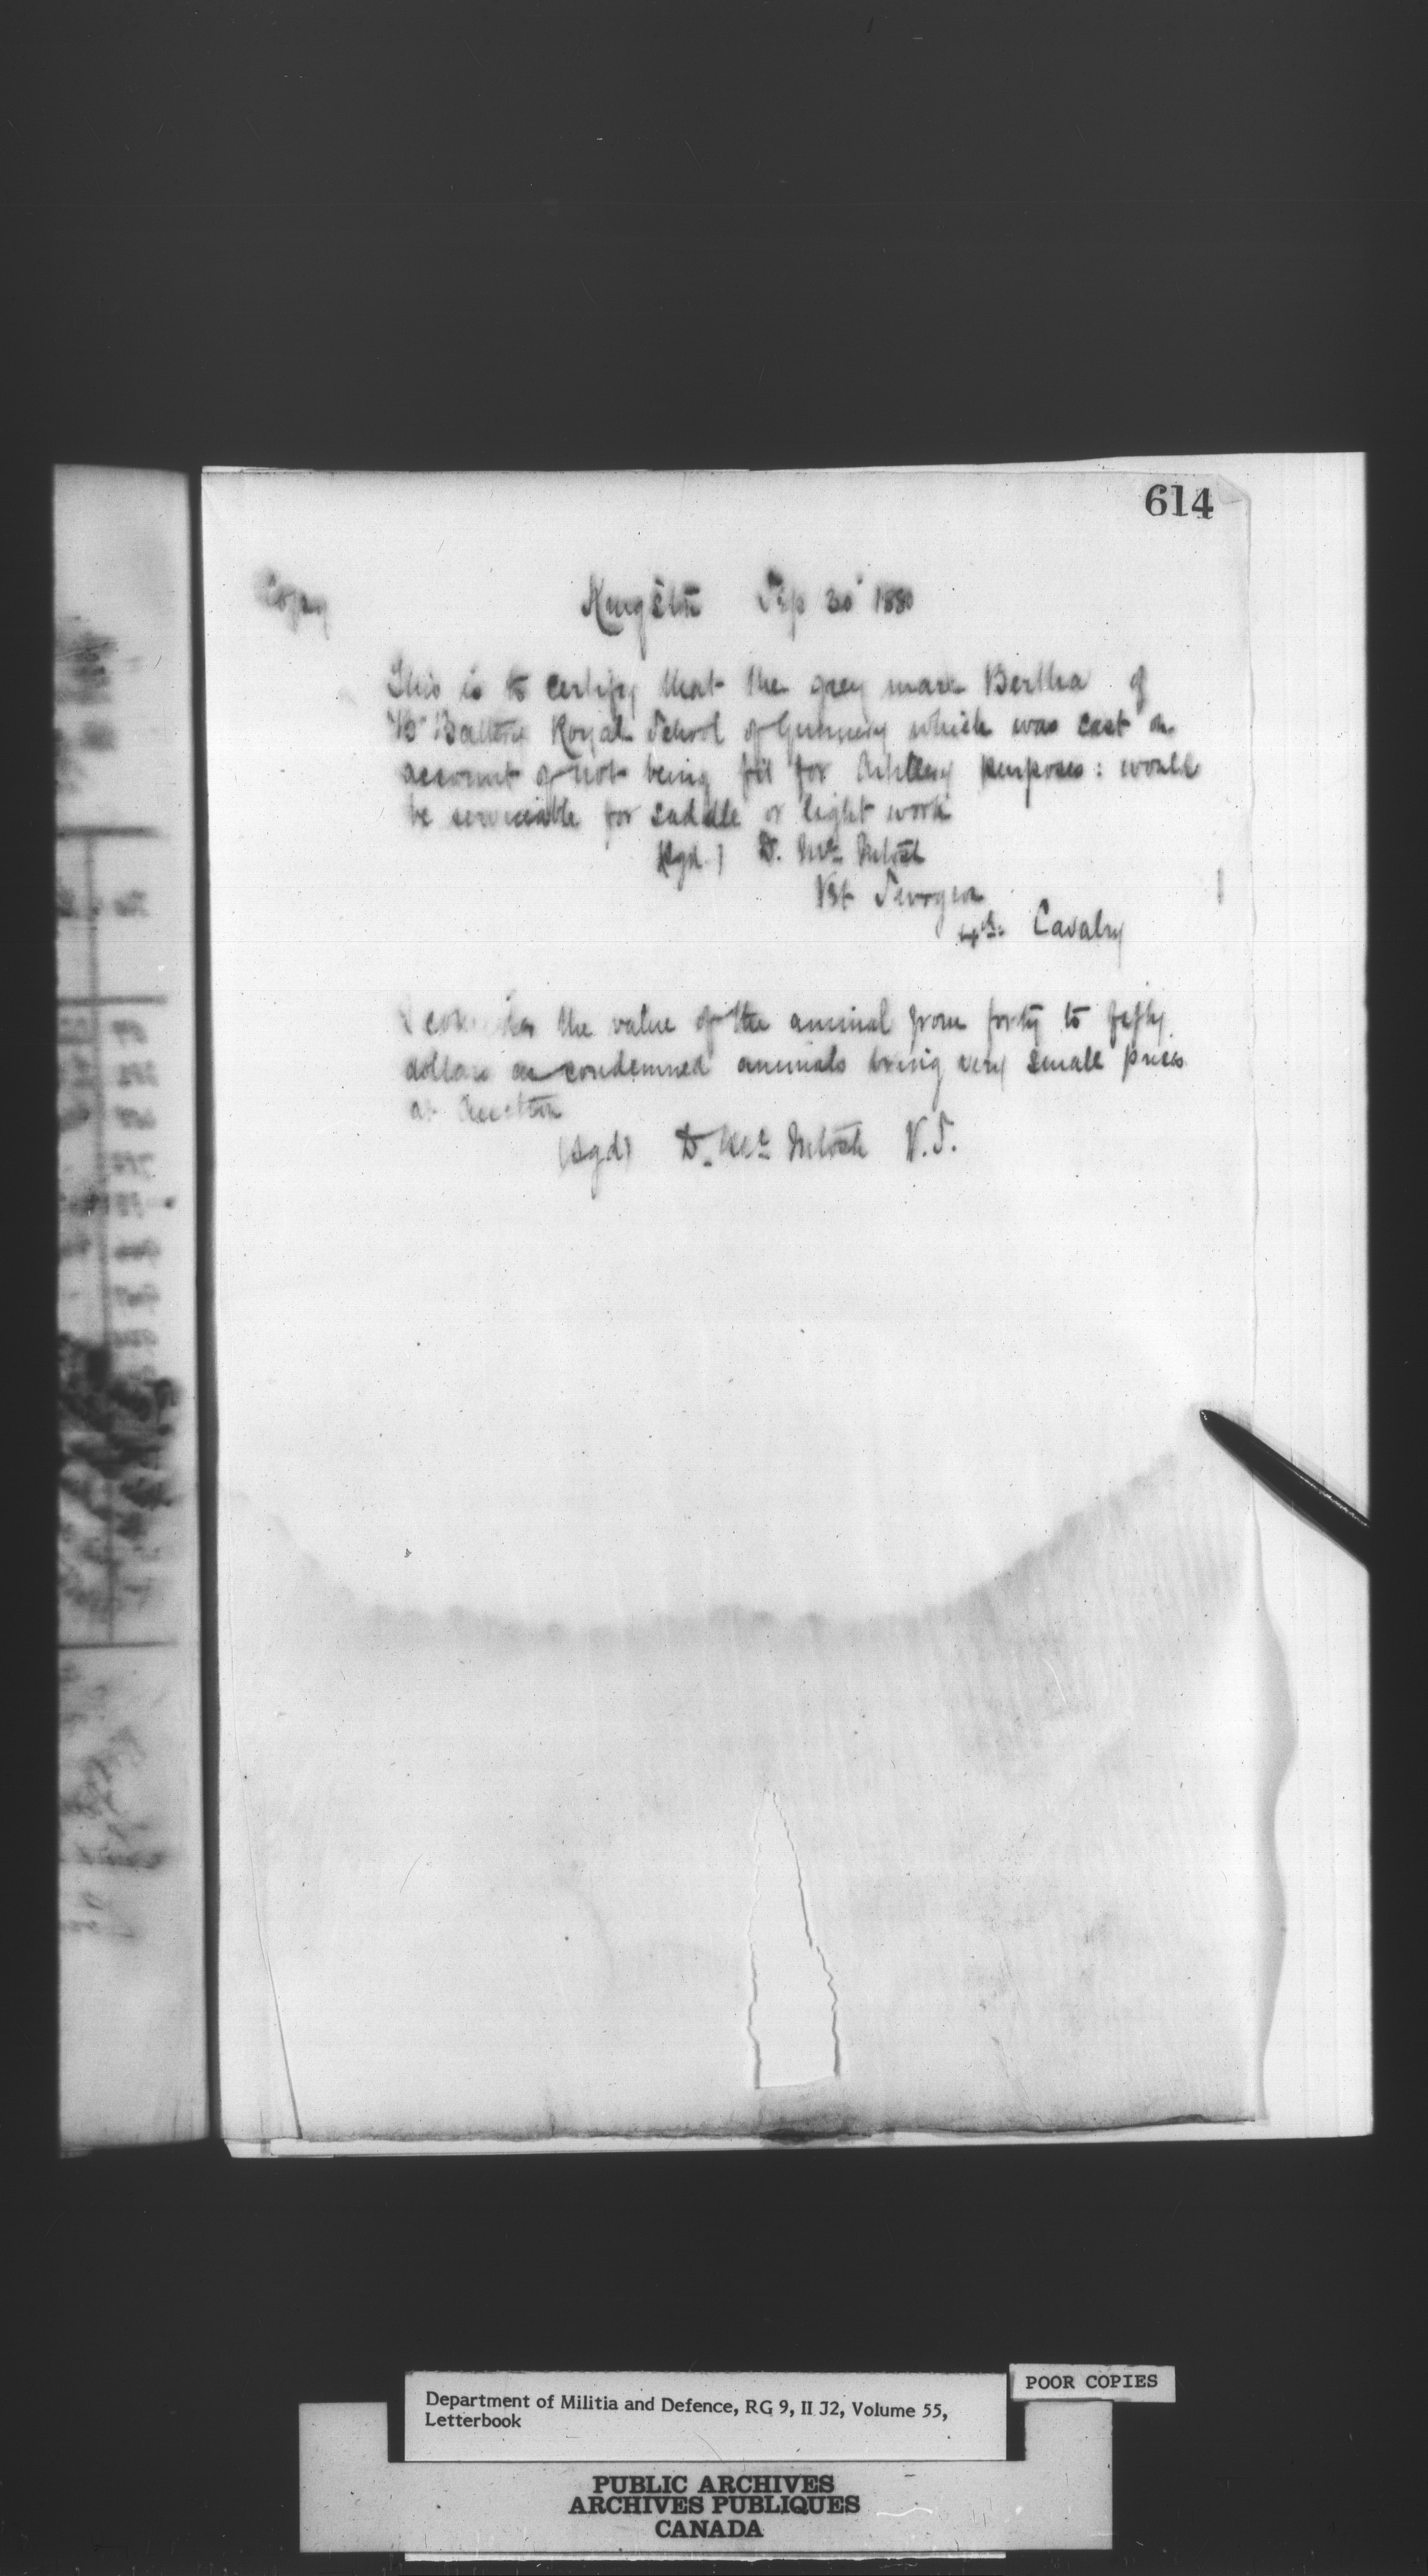 614
Copy
Kingston Sep 30 1880
This is to certify that the grey mare Bertha of
"B" Battery Royal School of Gunnery which was cast on
account of not being fit for Artillery purposes: would
be serviceable for saddle or light work
(Sgd.) D. Mc Intosh
Vet Surgeon
4th Cavalry
I consider the value of the animal from forty to fifty
dollars as condemned animals bring very small prices
at Auction
(Sgd) D. Mc Intosh V.S.
POOR COPIES
Department of Militia and Defence, RG 9, II J2, Volume 55,
Letterbook
PUBLIC ARCHIVES
ARCHIVES PUBLIQUES
CANADA